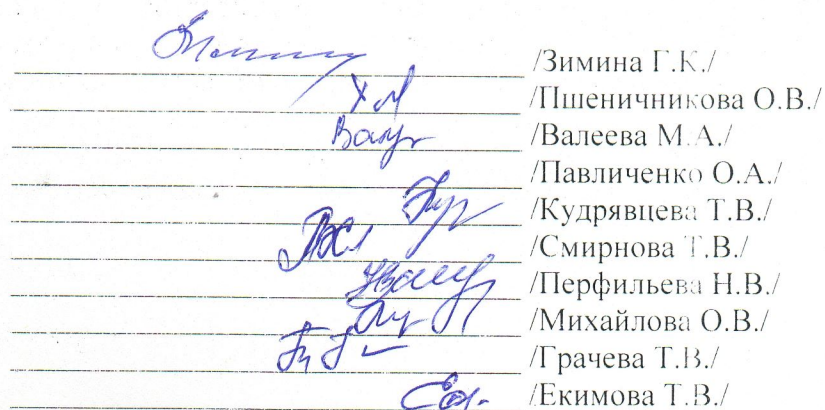 /Зимина Г.К./
/Пшеничникова О.В./
/Валеева М.А./
/Павличенко О.А./
/Кудрявцева Т.В./
/Смирнова Т.В./
/Перфильева Н.В./
/Михайлова О.В./
/Грачева Т.В./
/Екимова Т.В./